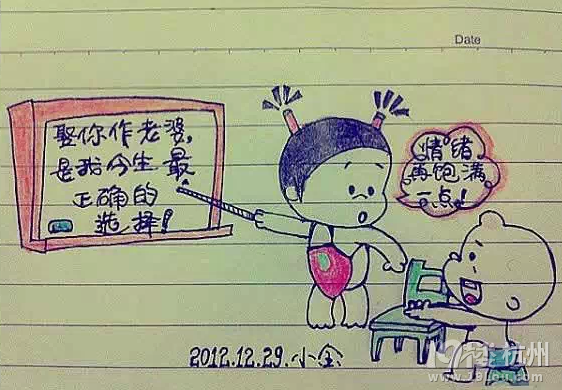 Date
娶你作老婆,
是我今生最
正确的
选择!
情绪
再饱满
一点!
2012.12.29.小全
19楼杭州
www.19lou.com